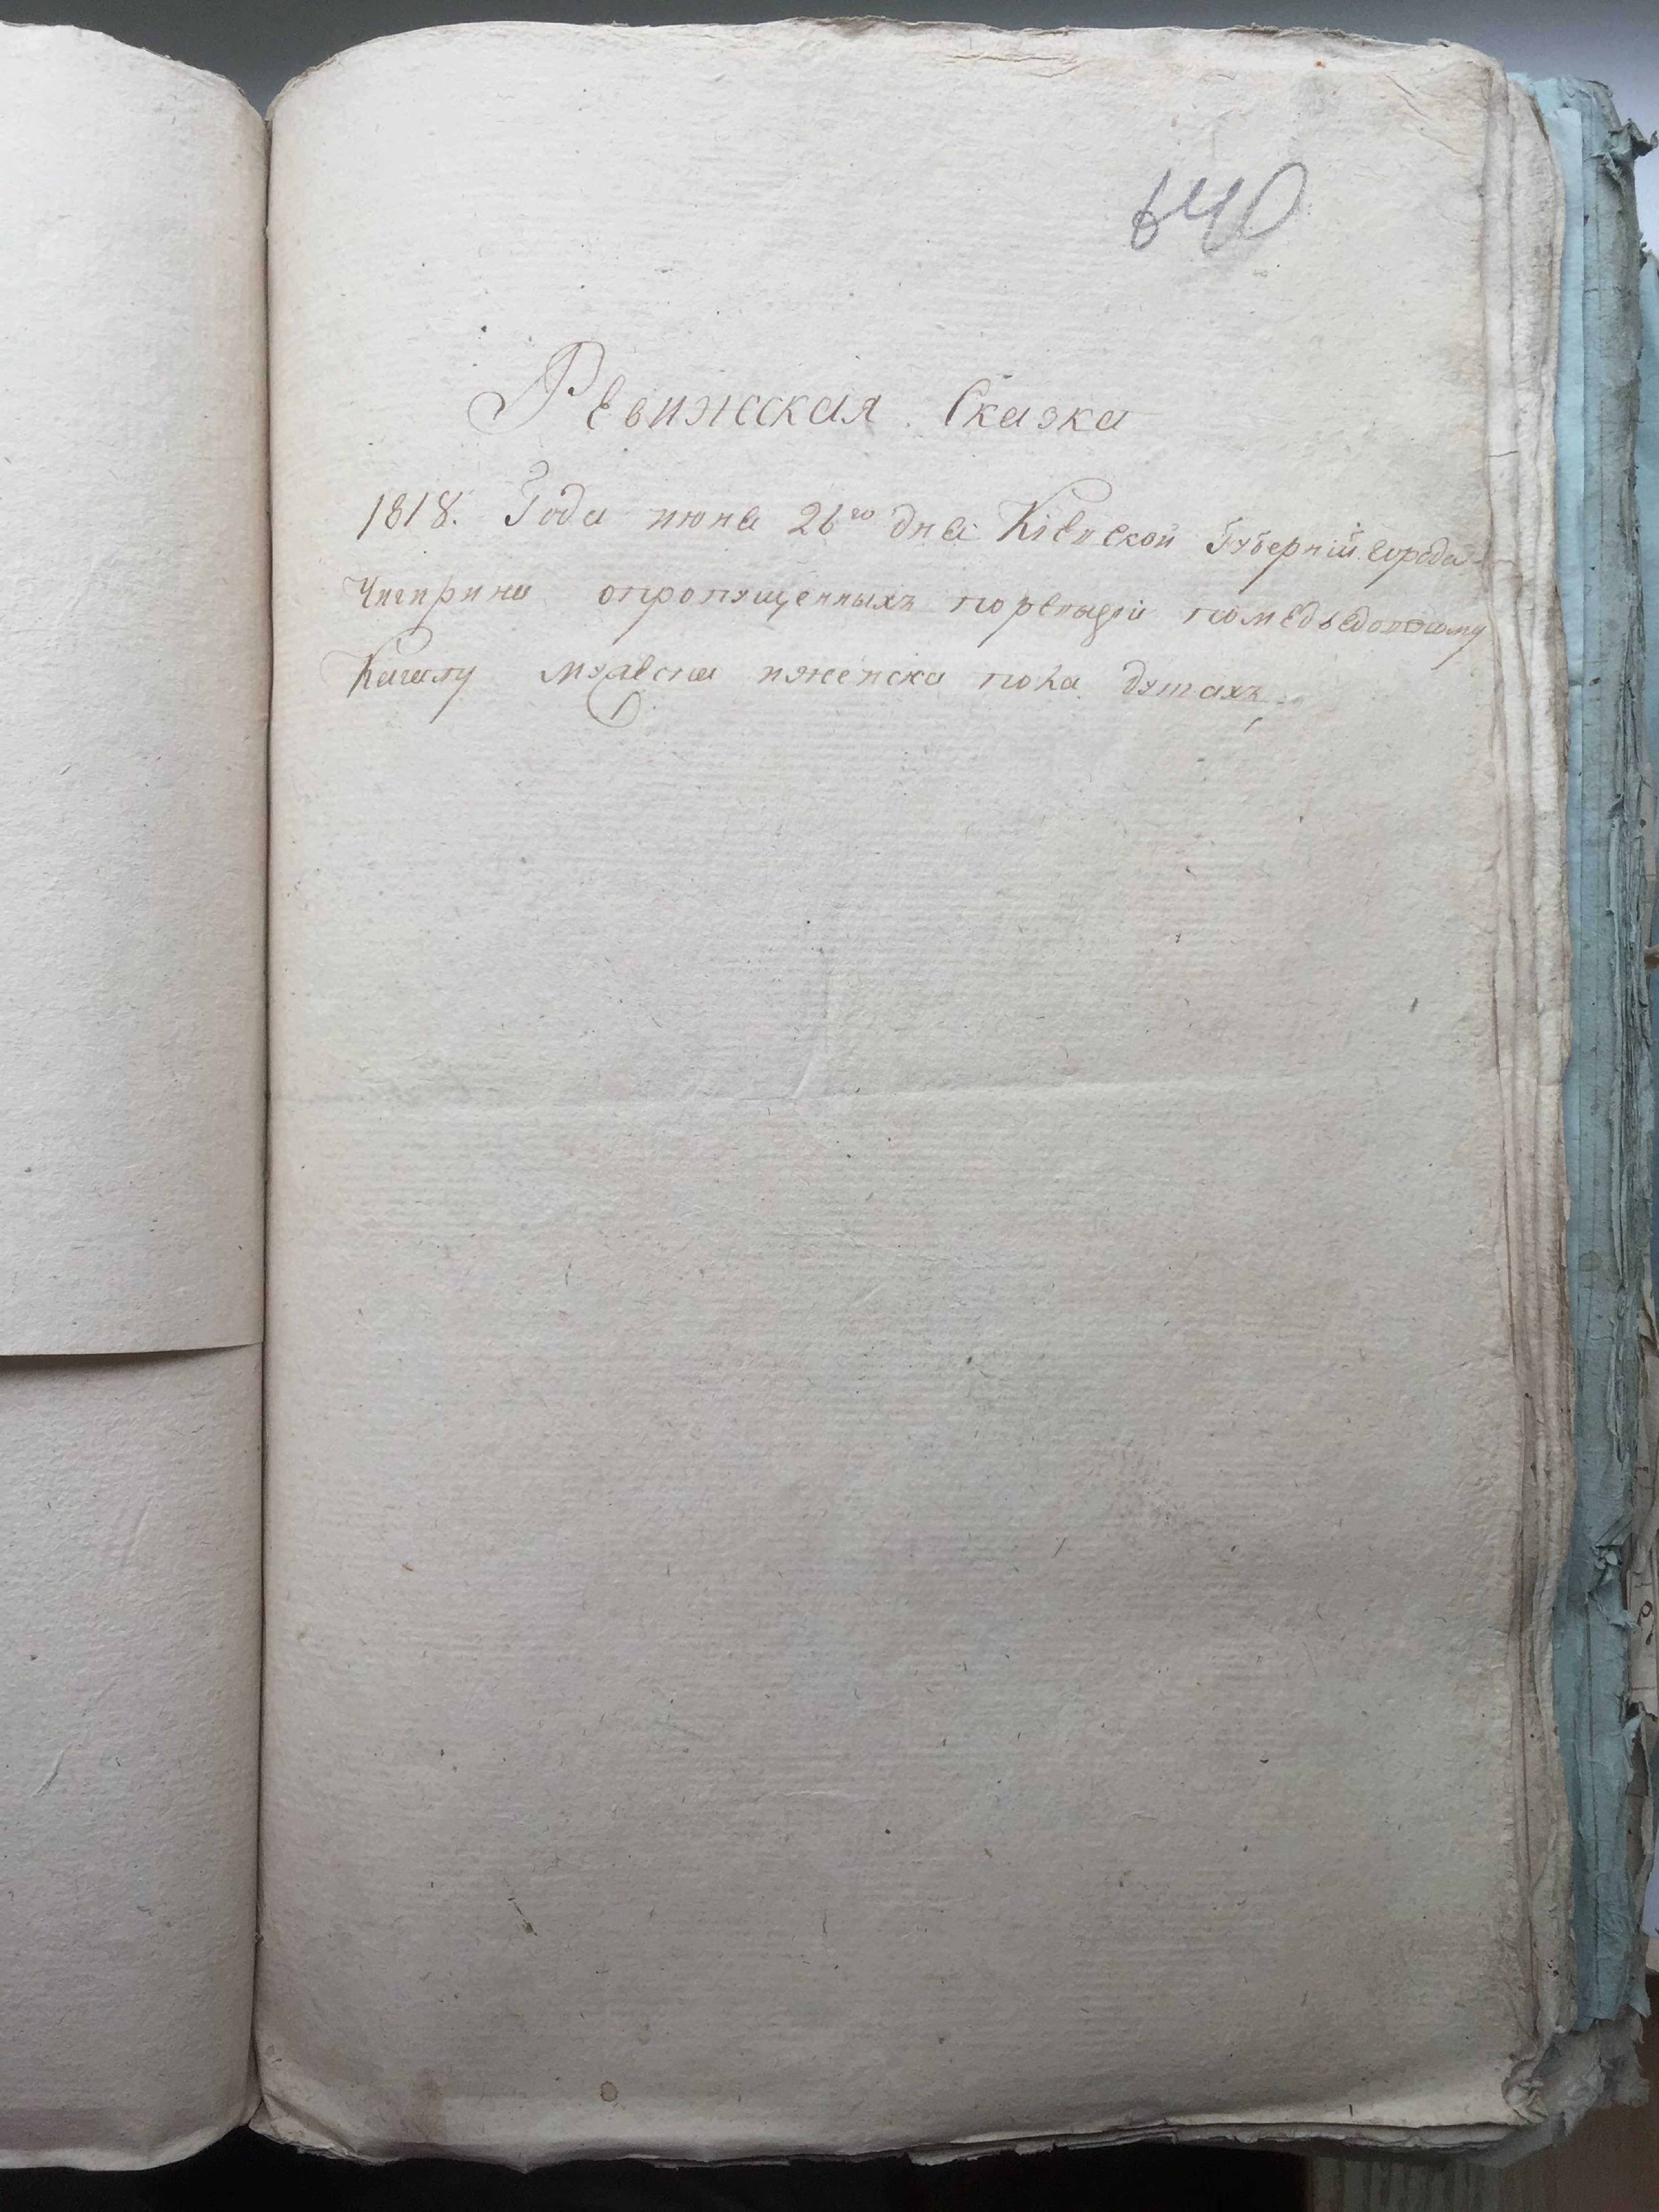 640
Ревижская Сказка
1818. Года июня 26го дня Кіевской Губерніи города
Чигирина опропущенныхъ поревизіи помедведовскому
Кагалу мужеска иженска пола душахъ